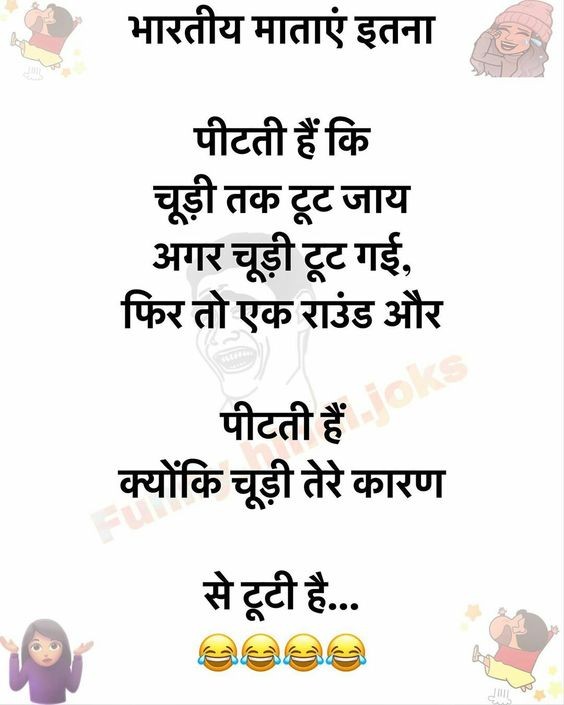 भारतीय माताएं इतना
पीटती हैं कि
चूड़ी तक टूट जाय
अगर चूड़ी टूट गई,
फिर तो एक राउंड और
पीटती हैं
क्योंकि चूड़ी तेरे कारण
से टूटी है...
😂😂😂😂
Funny.hindi.joks